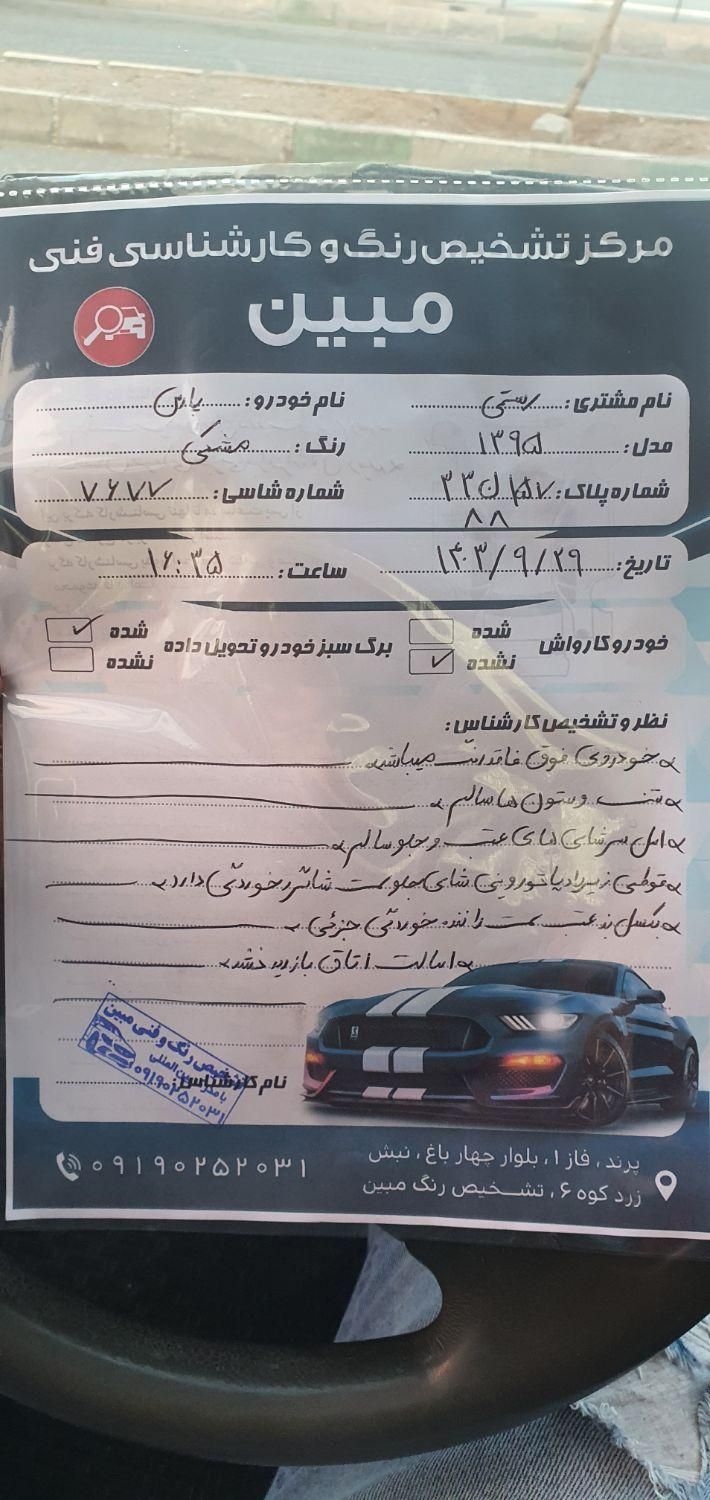 مرکز تشخیص رنگ و کارشناسی فنی
مبین
نام مشتری: رستمی نام خودرو: پارس
مدل: ۱۳۹۵ رنگ: مشکی
شماره پلاک: ۳۳ ۴۵۷ شماره شاسی: ۷۶۷۷
۸۸
تاریخ: ۱۴۰۳/۹/۲۹ ساعت: ۱۶:۳۵
خودرو کارواش شده نشده ✓ برگ سبز خودرو تحویل داده شده ✓ نشده
نظر و تشخیص کارشناس:
خودروی فوق فاقد رنگ میباشد
و ستون ها سالم
اصل سرشاسی های عقب و جلو سالم
قوطی زیر رادیاتور و بینی شاسی جلو سمت شاگرد خوردگی دارد
عقب سمت راننده خوردگی جزئی
اصالت اتاق بازدید نشد
تشخیص رنگ و فنی مبین
۰۹۱۹۰۲۵۲۰۳۱
نام کارشناس:
پرند، فاز ۱، بلوار چهار باغ، نبش
زرد کوه ۶، تشخیص رنگ مبین
۰۹۱۹۰۲۵۲۰۳۱